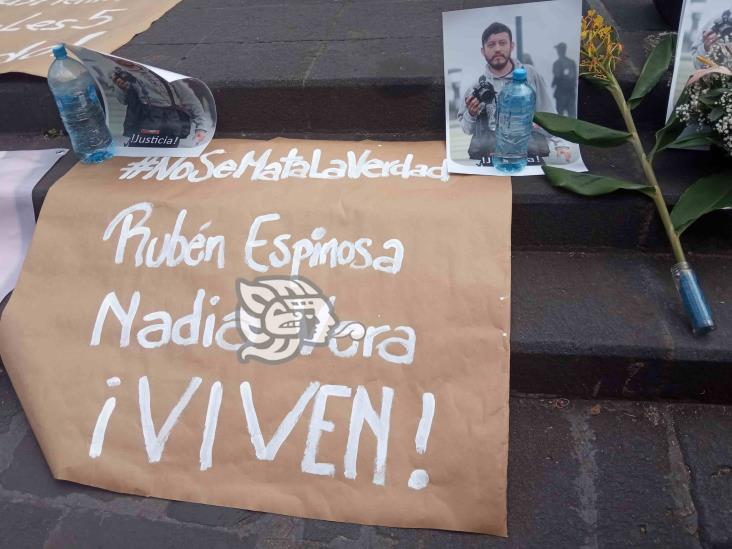 ¡Justicia!
¡Justicia!
#NoSeMataLaVerdad
Rubén Espinosa
Nadia Vera
¡VIVEN!